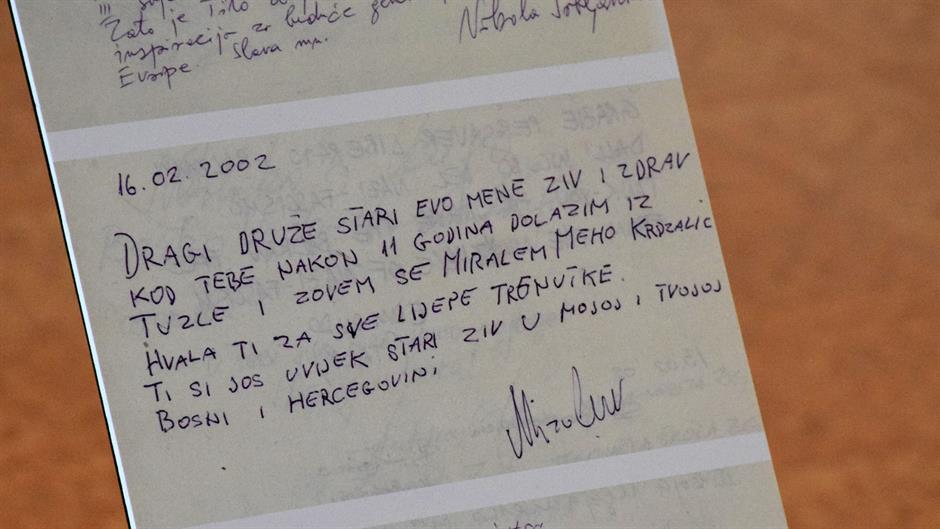 Zato je Tito
inspiracija za buduće
Evrope. Slava mu.
Nikola
16.02.2002
DRAGI DRUŽE STARI EVO MENE ZIV I ZDRAV
KOD TEBE NAKON 11 GODINA DOLAZIM IZ
TUZLE I ZOVEM SE MIRALEM MEHO KRDZALIC
HVALA TI ZA SVE LIJEPE TRENUTKE.
TI SI JOS UVIJEK STARI ZIV U MOJOJ I TVOJOJ
BOSNI I HERCEGOVINI